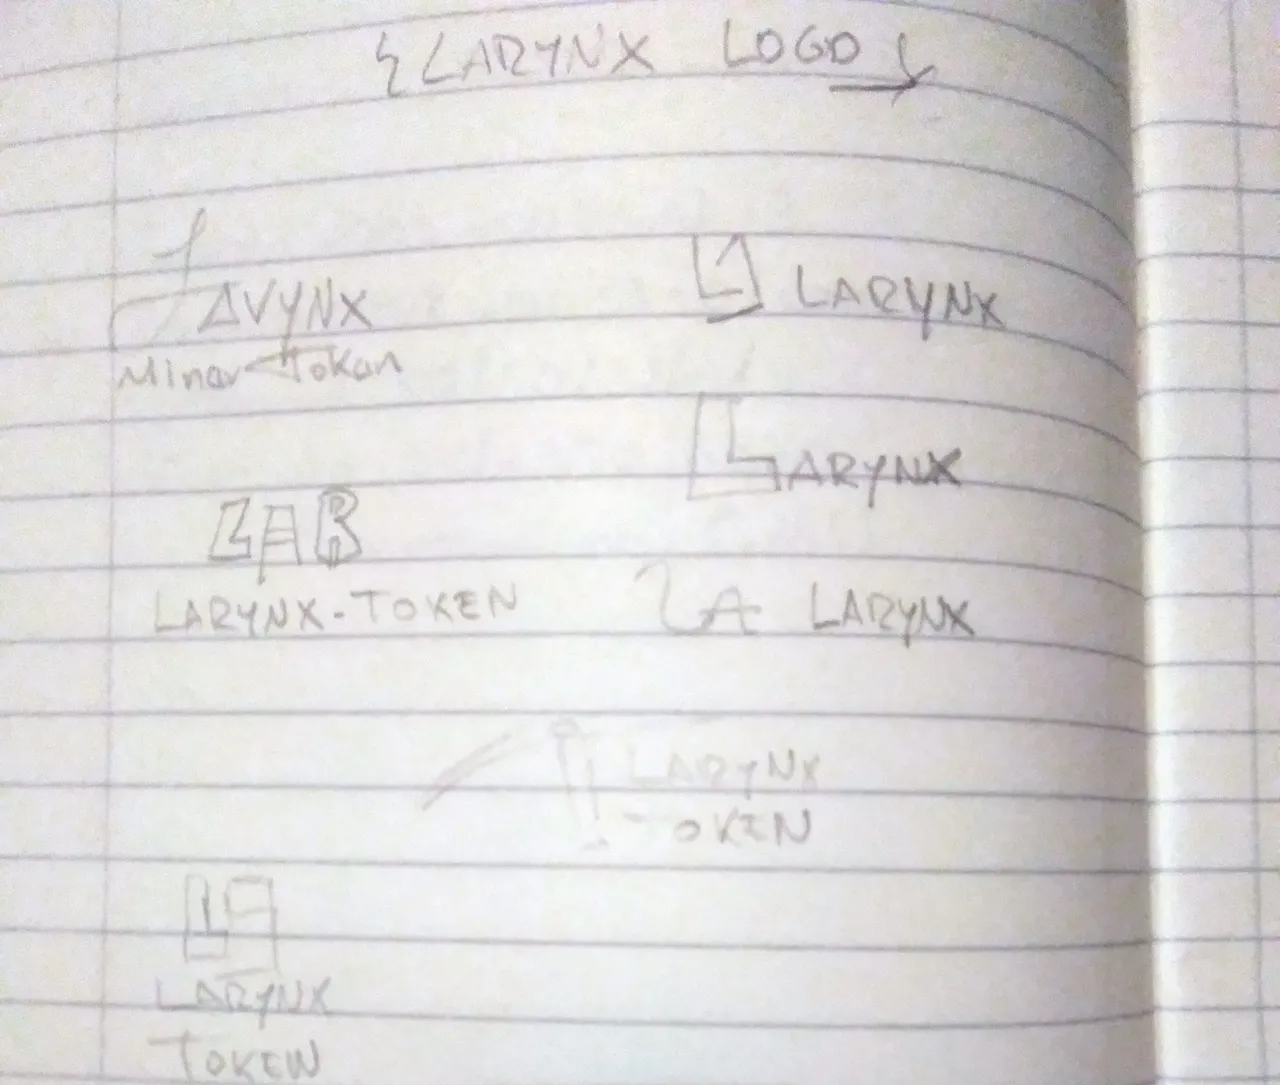 {LARYNX LOGO
LARYNX
AVYNX
Miner Token
LARYNX
LAB
LARYNX-TOKEN
LA LARYNX
LARYNX
TOKEN
LA
LARYNX
TOKEN